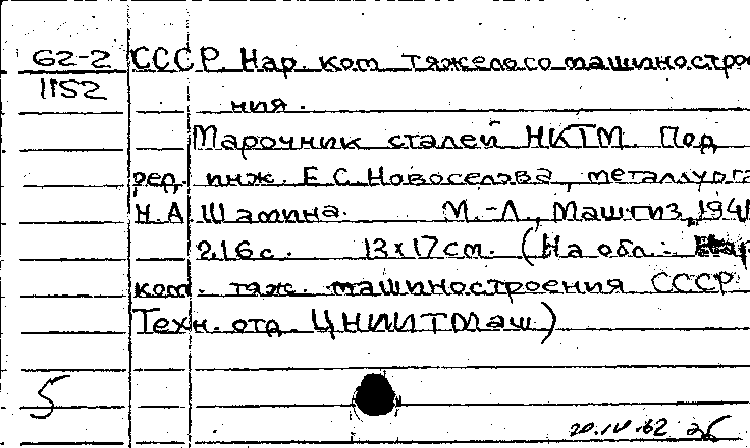 62-2 СССР. Нар. ком. тяжелого машинострое-
1152
ния.
Марочник сталей НКТМ. Под
ред. инж. Е.С. Новоселова, металлурга
Н.А. Шамина. М.-Л., Машгиз, 1941
216 с. 13х17 см. (На обл.: Нар.
ком. тяж. машиностроения СССР.
Техн. отд. ЦНИИТМаш)
5
20.IV.62